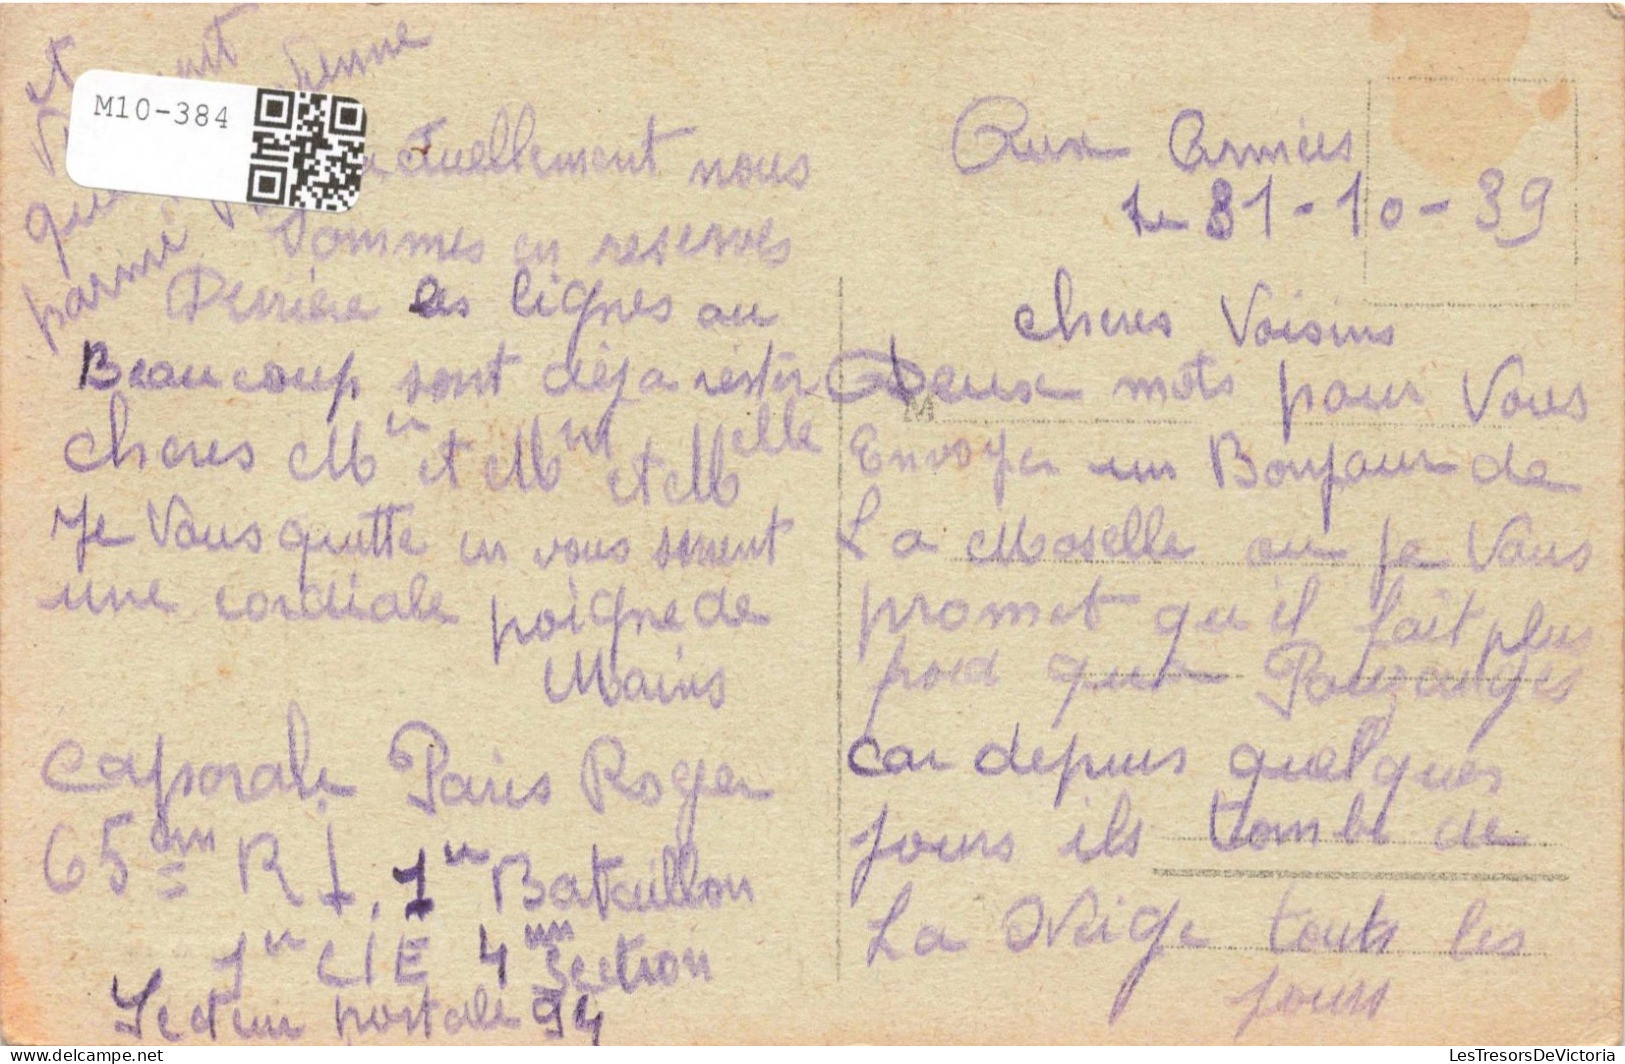 Aux Armées
Le 31-10-39
cheres Voisins
Deux mots pour Vous
Envoyer un Bonjour de
La Moselle ou je Vous
promet qu'il fait plus
froid qua Pouzauges
car depuis quelques
jours ils tombe de
La Neige touts les
jours
et
parmi
M10-384
actuellement nous
sommes en reserves
Derrière les lignes ou
Beaucoup sont déja rester
cheres Mr et Mme et Melle
Je Vous quitte en vous serrent
une cordiale poignede
Mains
Caporale Paris Roger
65em R I. 1er Bataillon
1er CIE 4em Section
Secteur portale 94
M
LesTresorsDeVictoria